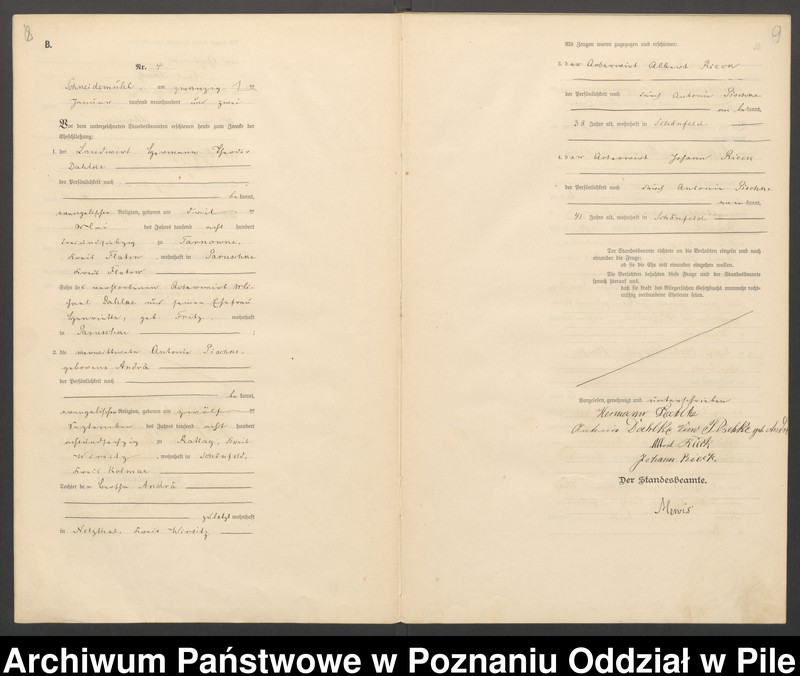 8
B.
Nr. 4
Schneidemühl, am zwanzig ten
Januar tausend neunhundert und zwei
Vor dem unterzeichneten Standesbeamten erschienen heute zum Zwecke der
Eheschließung:
1. der Landwirt Hermann Theodor
Dahlke
der Persönlichkeit nach
be kannt,
evangelischer Religion, geboren am drei ten
Mai des Jahres tausend acht hundert
dreiundsiebzig zu Tarnowke,
Kreis Flatow, wohnhaft in Paruschke
Kreis Flatow
Sohn des verstorbenen Ackerwirt Mi-
chael Dahlke und seiner Ehefrau
Henriette, geb. Fritz, wohnhaft
in Paruschke ;
2. die verwittwete Antonie Pischke,
geborene Andrä
der Persönlichkeit nach
be kannt,
evangelischer Religion, geboren am zwölf ten
September des Jahres tausend acht hundert
achtundsechzig zu Rattay, Kreis
Wirsitz, wohnhaft in Schönfeld,
Kreis Kolmar
Tochter der Bertha Andrä
zuletzt wohnhaft
in Netzthal, Kreis Wirsitz
9
Als Zeugen waren zugezogen und erschienen:
3. der Ackerwirt Albert Rieck
der Persönlichkeit nach durch Antonie Pischke
be kannt,
38 Jahre alt, wohnhaft in Schönfeld
4. der Ackerwirt Johann Rieck
der Persönlichkeit nach durch Antonie Pischke
kannt,
41 Jahre alt, wohnhaft in Schönfeld
Der Standesbeamte richtete an die Verlobten einzeln und nach
einander die Frage:
ob sie die Ehe mit einander eingehen wollen.
Die Verlobten bejahten diese Frage und der Standesbeamte
sprach hierauf aus,
daß sie kraft des Bürgerlichen Gesetzbuchs nunmehr recht-
mäßig verbundene Eheleute seien.
Vorgelesen, genehmigt und unterschrieben
Hermann Dahlke
Antonie Dahlke verw Pischke geb. Andrä
Albert Rück
Johann Rieck.
Der Standesbeamte.
Mewis
Archiwum Państwowe w Poznaniu Oddział w Pile